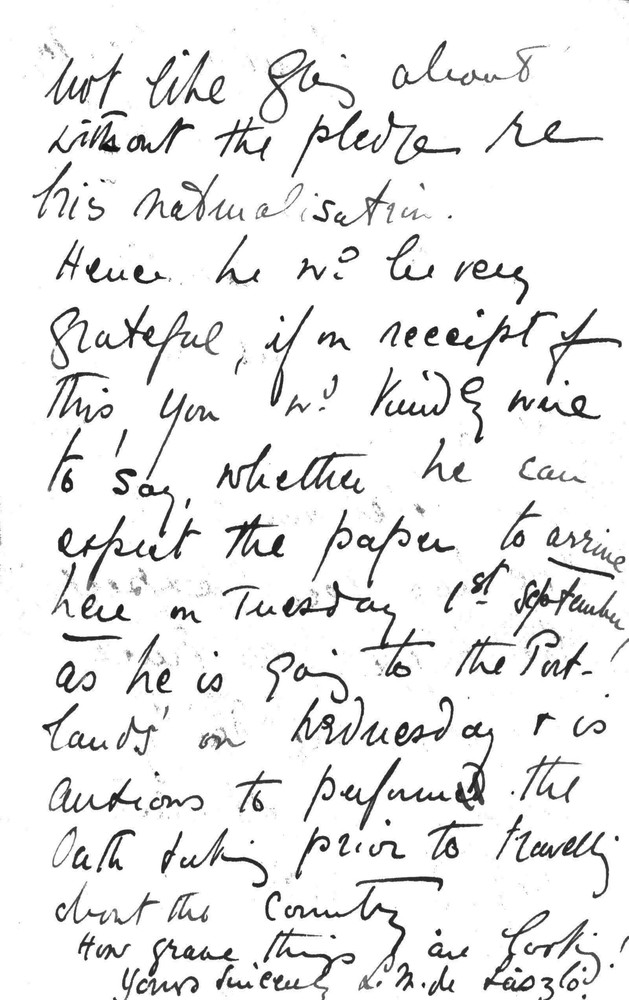 not like going about
without the pledge re
his naturalisation.
Hence he wd be very
grateful, if on receipt of
this, you wd kindly wire
to say, whether he can
expect the paper to arrive
here on Tuesday 1st September,
as he is going to the Port-
lands' on Wednesday & is
anxious to perform the
Oath taking prior to travelling
about the country
How grave things are looking!
Yours sincerely L. M. de László.